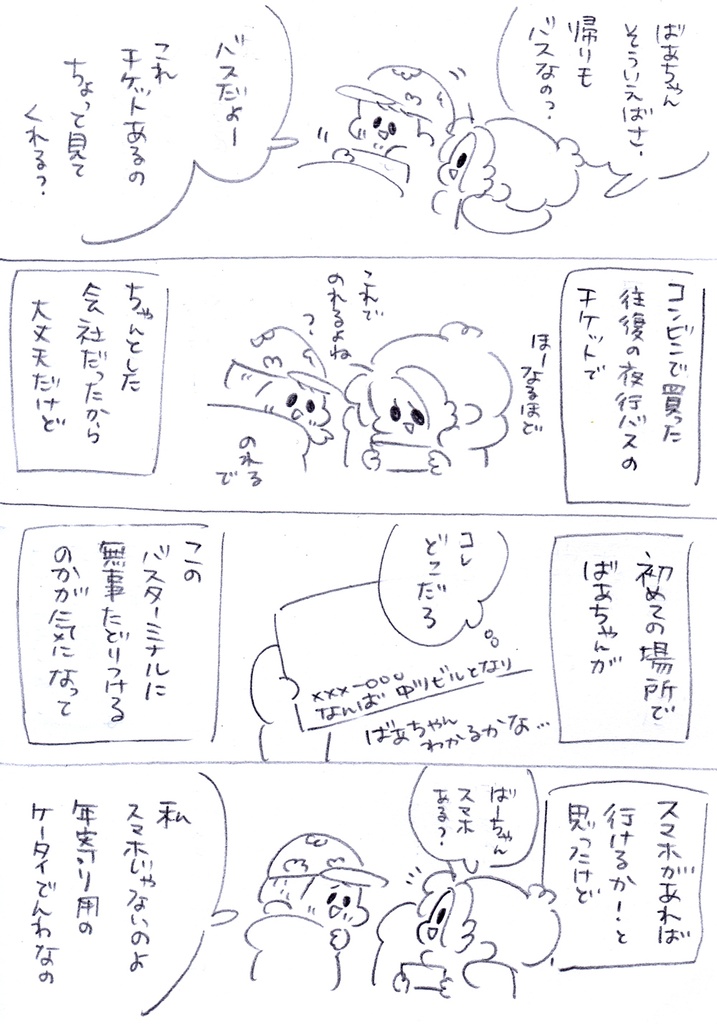 ばあちゃん
そういえばさ、
帰りも
バスなの?
バスだよー
これ
チケットあるの
ちょっと見て
くれる?
コンビニで買った
往復の夜行バスの
チケットで
ほーなるほど
これで
のれるよね
?
のれる
で
ちゃんとした
会社だったから
大丈夫だけど
初めての場所で
ばあちゃんが
コレ
どこだろ
xxx-000
なんば 中ツビルとなり
ばあちゃん
わかるかな…
この
バスターミナルに
無事たどりつける
のかが気になって
スマホがあれば
行けるか!と
思ったけど
ばーちゃん
スマホ
ある?
私
スマホじゃないのよ
年寄り用の
ケータイでんわなの